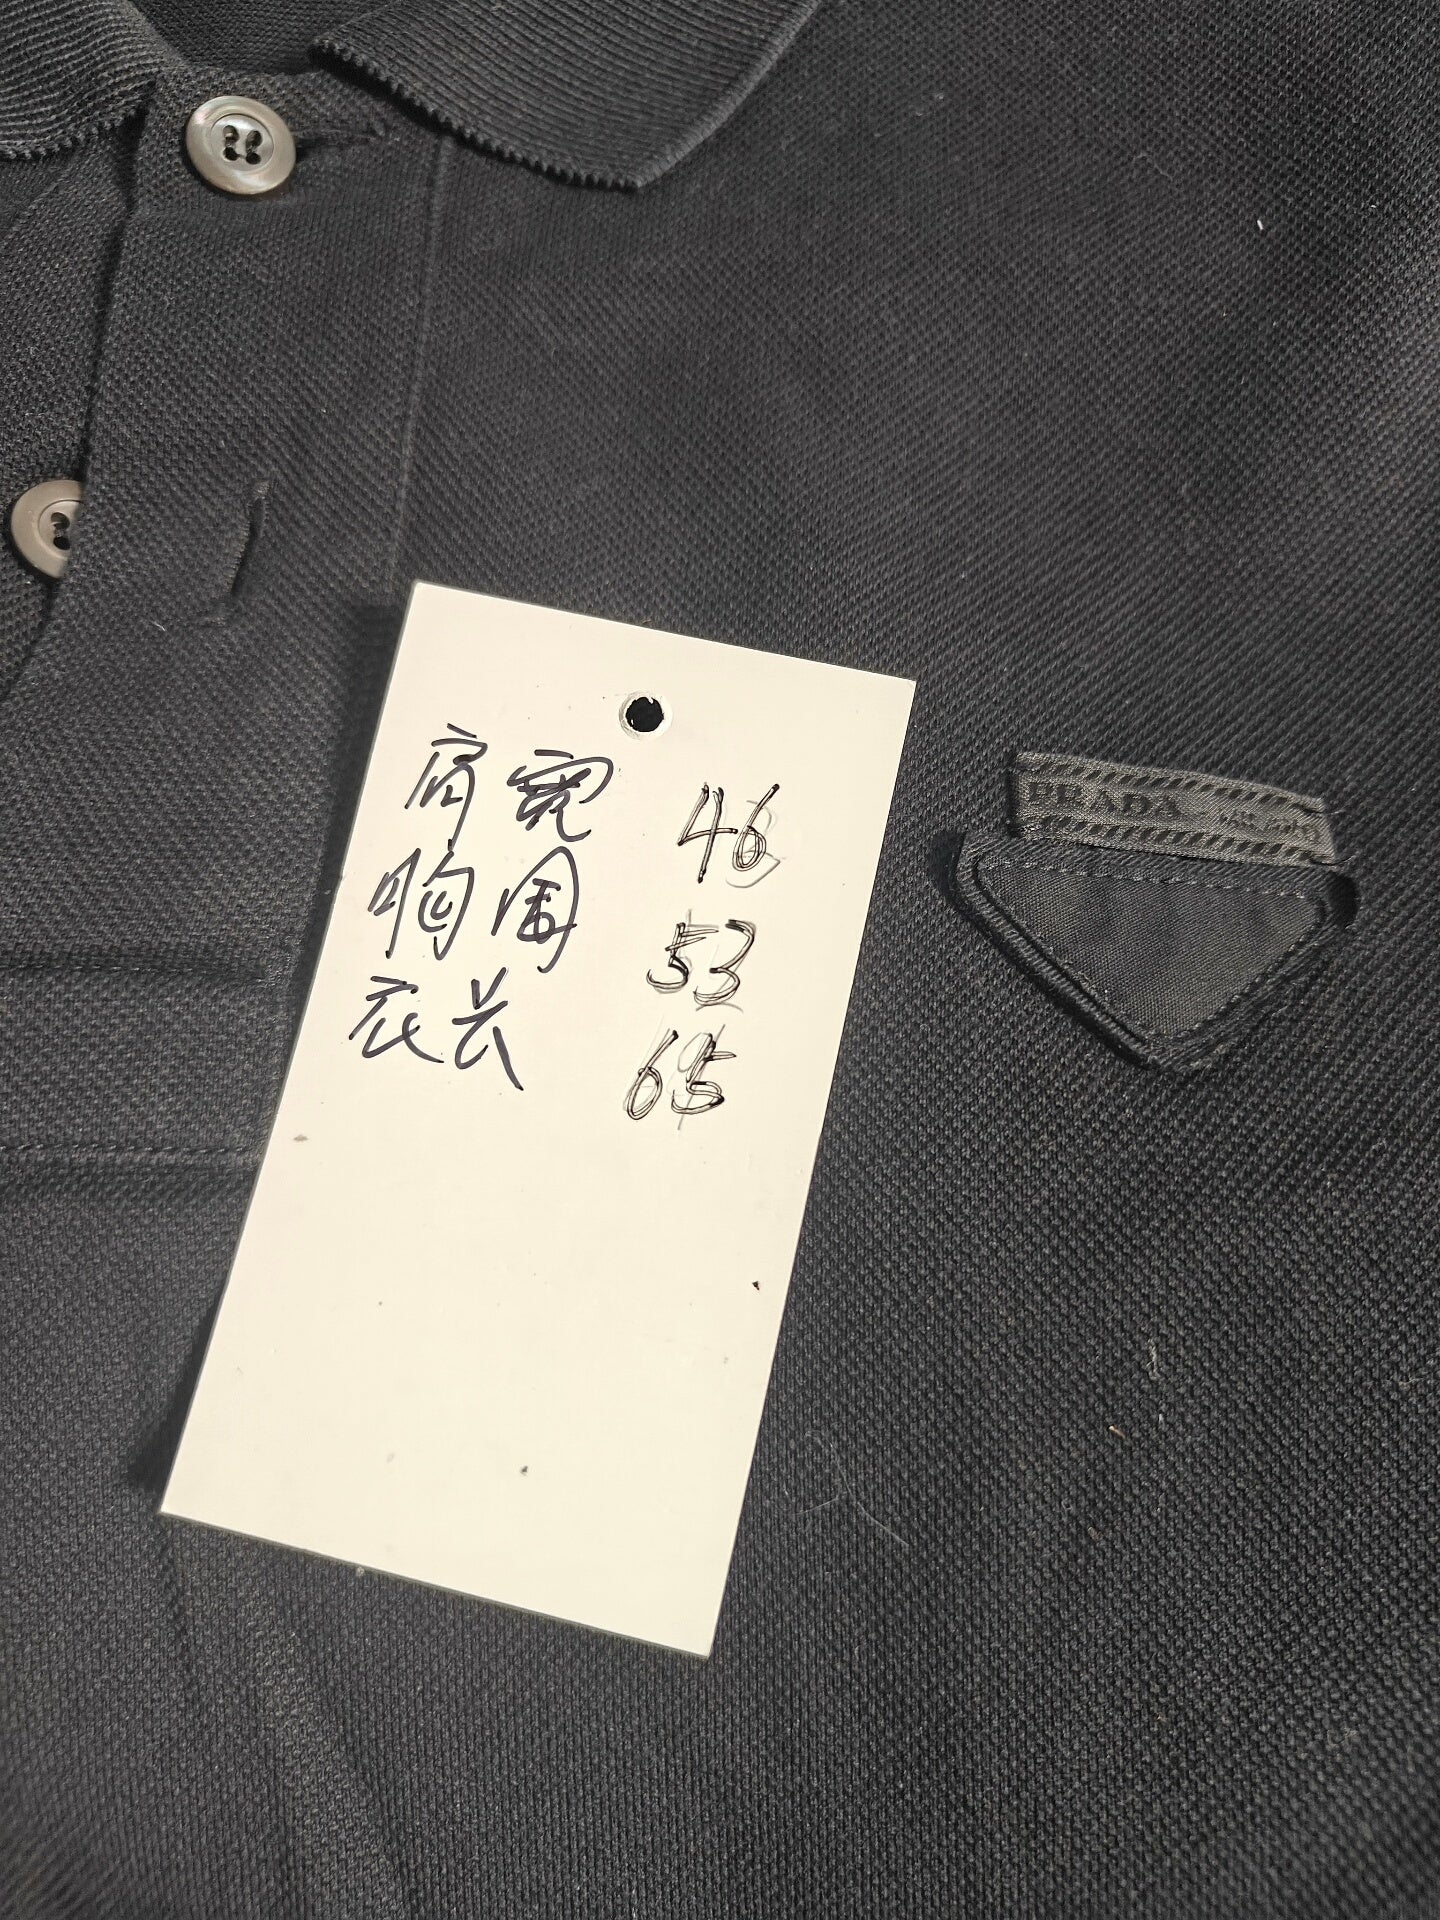 肩宽 46
胸围 53
衣长 65
PRADA